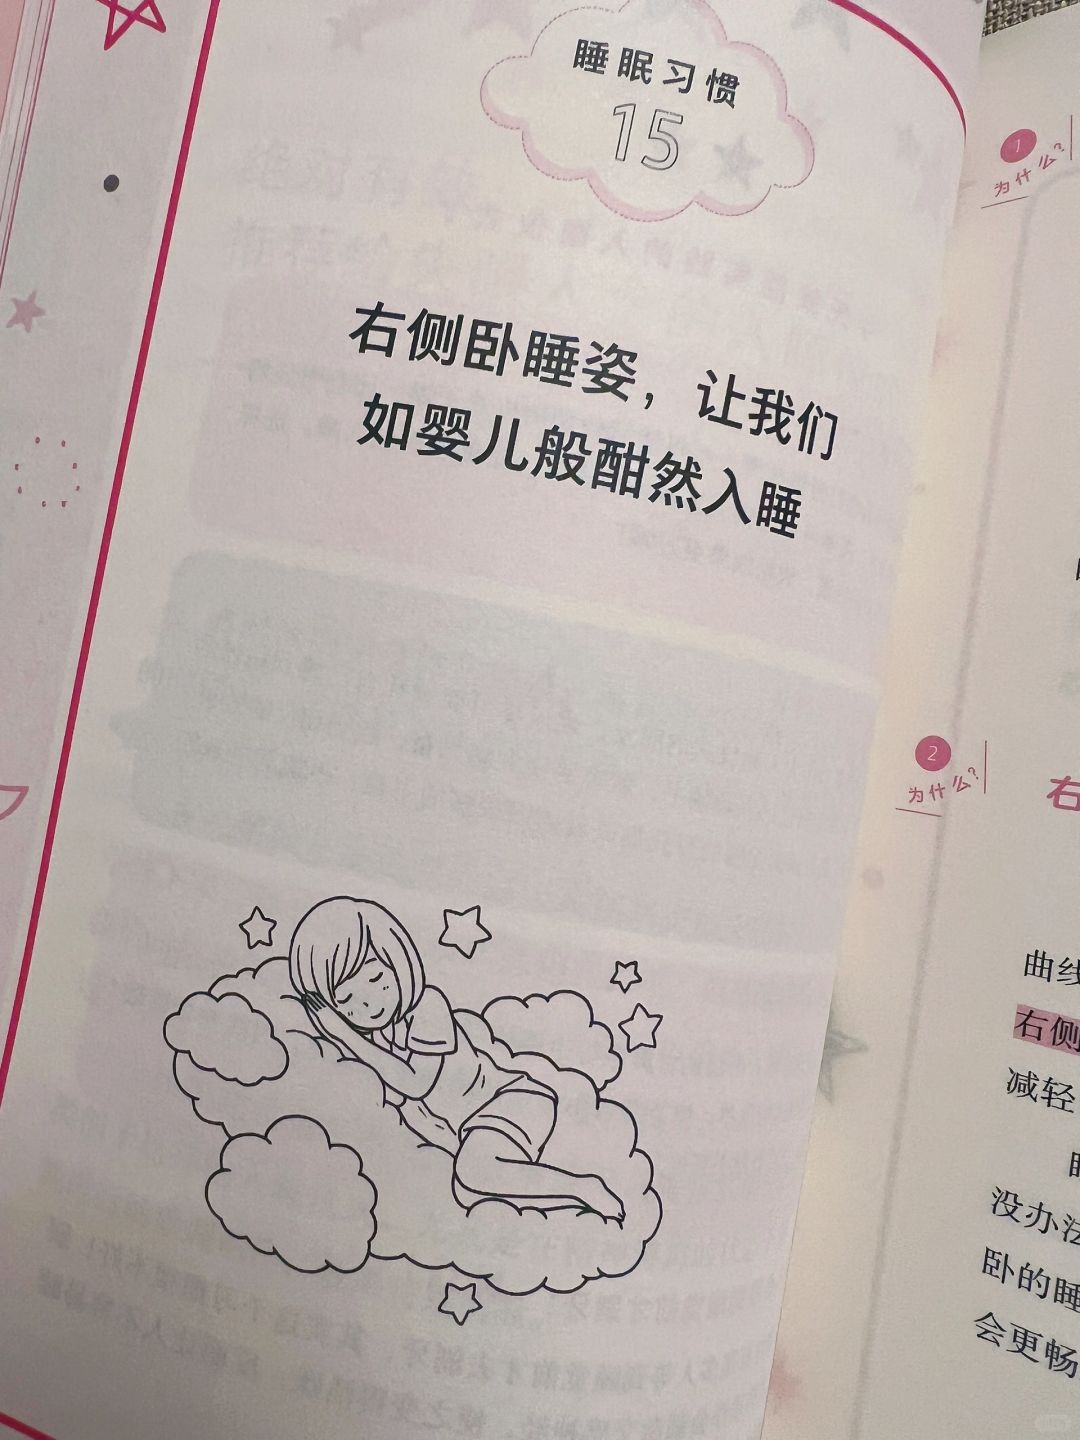 睡眠习惯
15
右侧卧睡姿，让我们
如婴儿般酣然入睡
1
为什么?
2
为什么?
右
曲线
右侧
减轻
没办法
卧的睡
会更畅